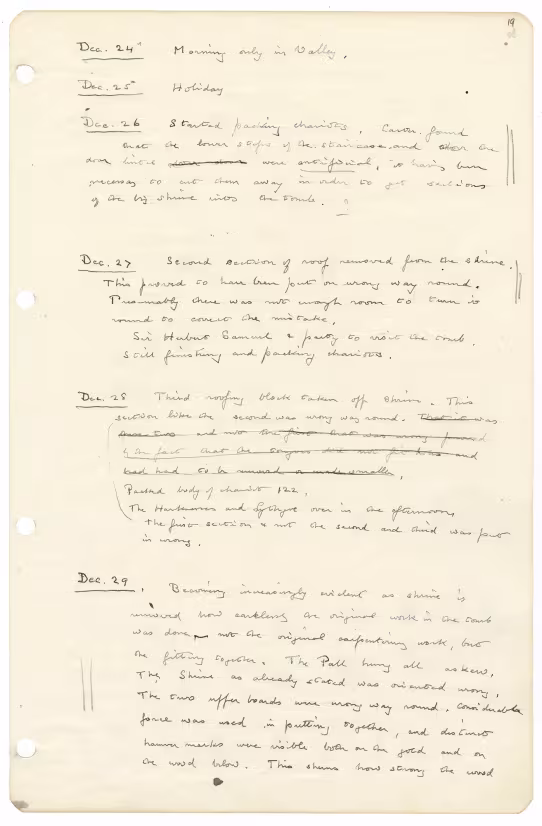 19
Dec. 24
Morning only in Valley.
Dec. 25
Holiday
Dec. 26 Started packing chariots. Carter found
that the lower steps of the staircase and also the
door lintel door were artificial, it having been
necessary to cut them away in order to get sections
of the big shrine into the tomb. ?
Dec. 27 Second section of roof removed from the shrine.
This proved to have been put on wrong way round.
Presumably there was not enough room to turn it
round to correct the mistake.
Sir Herbert Samuel & party to visit the tomb.
Still finishing and packing chariots.
Dec. 28 Third roofing block taken off shrine. This
section like the second was wrong way round. That it was
and not the first that was wrong
by the fact that the tongues did not fit and
had had to be
Packed body of chariot 122.
The Harknesses and Lythgoe over in the afternoon
The first section & not the second and third was put
in wrong.
Dec. 29. Becoming increasingly evident as shrine is
removed how carelessly the original work in the tomb
was done, not the original carpentering work, but
the fitting together. The Pall hung all askew.
The Shrine as already stated was oriented wrong.
The two upper boards were wrong way round. Considerable
force was used in putting together, and distinct
hammer marks were visible both on the gold and on
the wood below. This shows how strong the wood